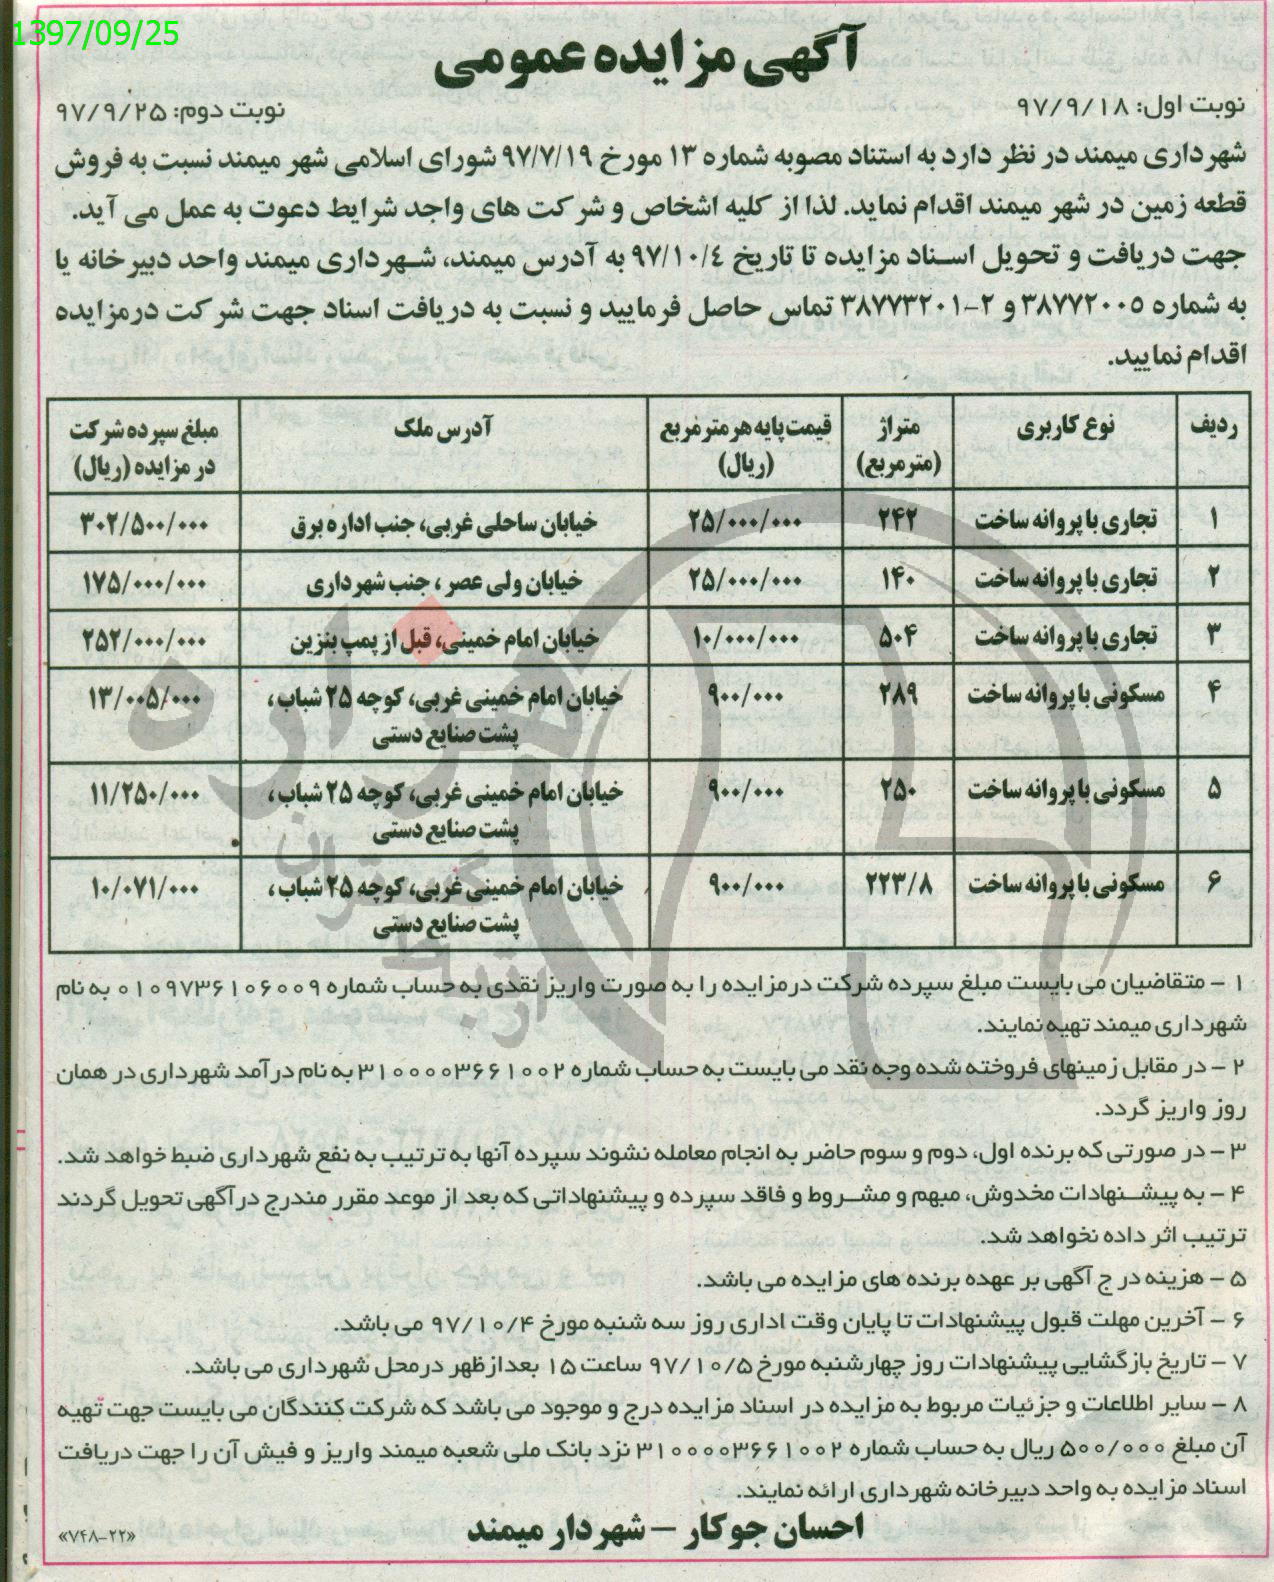 1397/09/25
آگهی مزایده عمومی
نوبت اول: ۹۷/۹/۱۸ نوبت دوم: ۹۷/۹/۲۵
شهرداری میمند در نظر دارد به استناد مصوبه شماره ۱۳ مورخ ۹۷/۷/۱۹ شورای اسلامی شهر میمند نسبت به فروش
قطعه زمین در شهر میمند اقدام نماید. لذا از کلیه اشخاص و شرکت های واجد شرایط دعوت به عمل می آید.
جهت دریافت و تحویل اسناد مزایده تا تاریخ ۹۷/۱۰/٤ به آدرس میمند، شهرداری میمند واحد دبیرخانه یا
به شماره ۳۸۷۷۲۰۰۵ و ۲-۳۸۷۷۳۲۰۱ تماس حاصل فرمایید و نسبت به دریافت اسناد جهت شرکت درمزایده
اقدام نمایید.
ردیف نوع کاربری متراژ (مترمربع) قیمت پایه هر مترمربع (ریال) آدرس ملک مبلغ سپرده شرکت در مزایده (ریال)
۱ تجاری با پروانه ساخت ۲۴۲ ۲۵/۰۰۰/۰۰۰ خیابان ساحلی غربی، جنب اداره برق ۳۰۲/۵۰۰/۰۰۰
۲ تجاری با پروانه ساخت ۱۴۰ ۲۵/۰۰۰/۰۰۰ خیابان ولی عصر ، جنب شهرداری ۱۷۵/۰۰۰/۰۰۰
۳ تجاری با پروانه ساخت ۵۰۴ ۱۰/۰۰۰/۰۰۰ خیابان امام خمینی، قبل از پمپ بنزین ۲۵۲/۰۰۰/۰۰۰
۴ مسکونی با پروانه ساخت ۲۸۹ ۹۰۰/۰۰۰ خیابان امام خمینی غربی، کوچه ۲۵ شباب ، ۱۳/۰۰۵/۰۰۰
پشت صنایع دستی
۵ مسکونی با پروانه ساخت ۲۵۰ ۹۰۰/۰۰۰ خیابان امام خمینی غربی، کوچه ۲۵ شباب ، ۱۱/۲۵۰/۰۰۰
پشت صنایع دستی
۶ مسکونی با پروانه ساخت ۲۲۳/۸ ۹۰۰/۰۰۰ خیابان امام خمینی غربی، کوچه ۲۵ شباب ، ۱۰/۰۷۱/۰۰۰
پشت صنایع دستی
۱ - متقاضیان می بایست مبلغ سپرده شرکت درمزایده را به صورت واریز نقدی به حساب شماره ۰۱۰۹۷۳۶۱۰۶۰۰۹ به نام
شهرداری میمند تهیه نمایند.
۲ - در مقابل زمینهای فروخته شده وجه نقد می بایست به حساب شماره ۳۱۰۰۰۰۳۶۶۱۰۰۲ به نام درآمد شهرداری در همان
روز واریز گردد.
۳ - در صورتی که برنده اول، دوم و سوم حاضر به انجام معامله نشوند سپرده آنها به ترتیب به نفع شهرداری ضبط خواهد شد.
۴ - به پیشنهادات مخدوش، مبهم و مشروط و فاقد سپرده و پیشنهاداتی که بعد از موعد مقرر مندرج درآگهی تحویل گردند
ترتیب اثر داده نخواهد شد.
۵ - هزینه درج آگهی بر عهده برنده های مزایده می باشد.
۶ - آخرین مهلت قبول پیشنهادات تا پایان وقت اداری روز سه شنبه مورخ ۹۷/۱۰/۴ می باشد.
۷ - تاریخ بازگشایی پیشنهادات روز چهارشنبه مورخ ۹۷/۱۰/۵ ساعت ۱۵ بعدازظهر درمحل شهرداری می باشد.
۸ - سایر اطلاعات و جزئیات مربوط به مزایده در اسناد مزایده درج و موجود می باشد که شرکت کنندگان می بایست جهت تهیه
آن مبلغ ۵۰۰/۰۰۰ ریال به حساب شماره ۳۱۰۰۰۰۳۶۶۱۰۰۲ نزد بانک ملی شعبه میمند واریز و فیش آن را جهت دریافت
اسناد مزایده به واحد دبیرخانه شهرداری ارائه نمایند.
احسان جوکار - شهردار میمند
«۷۴۸-۲۲»